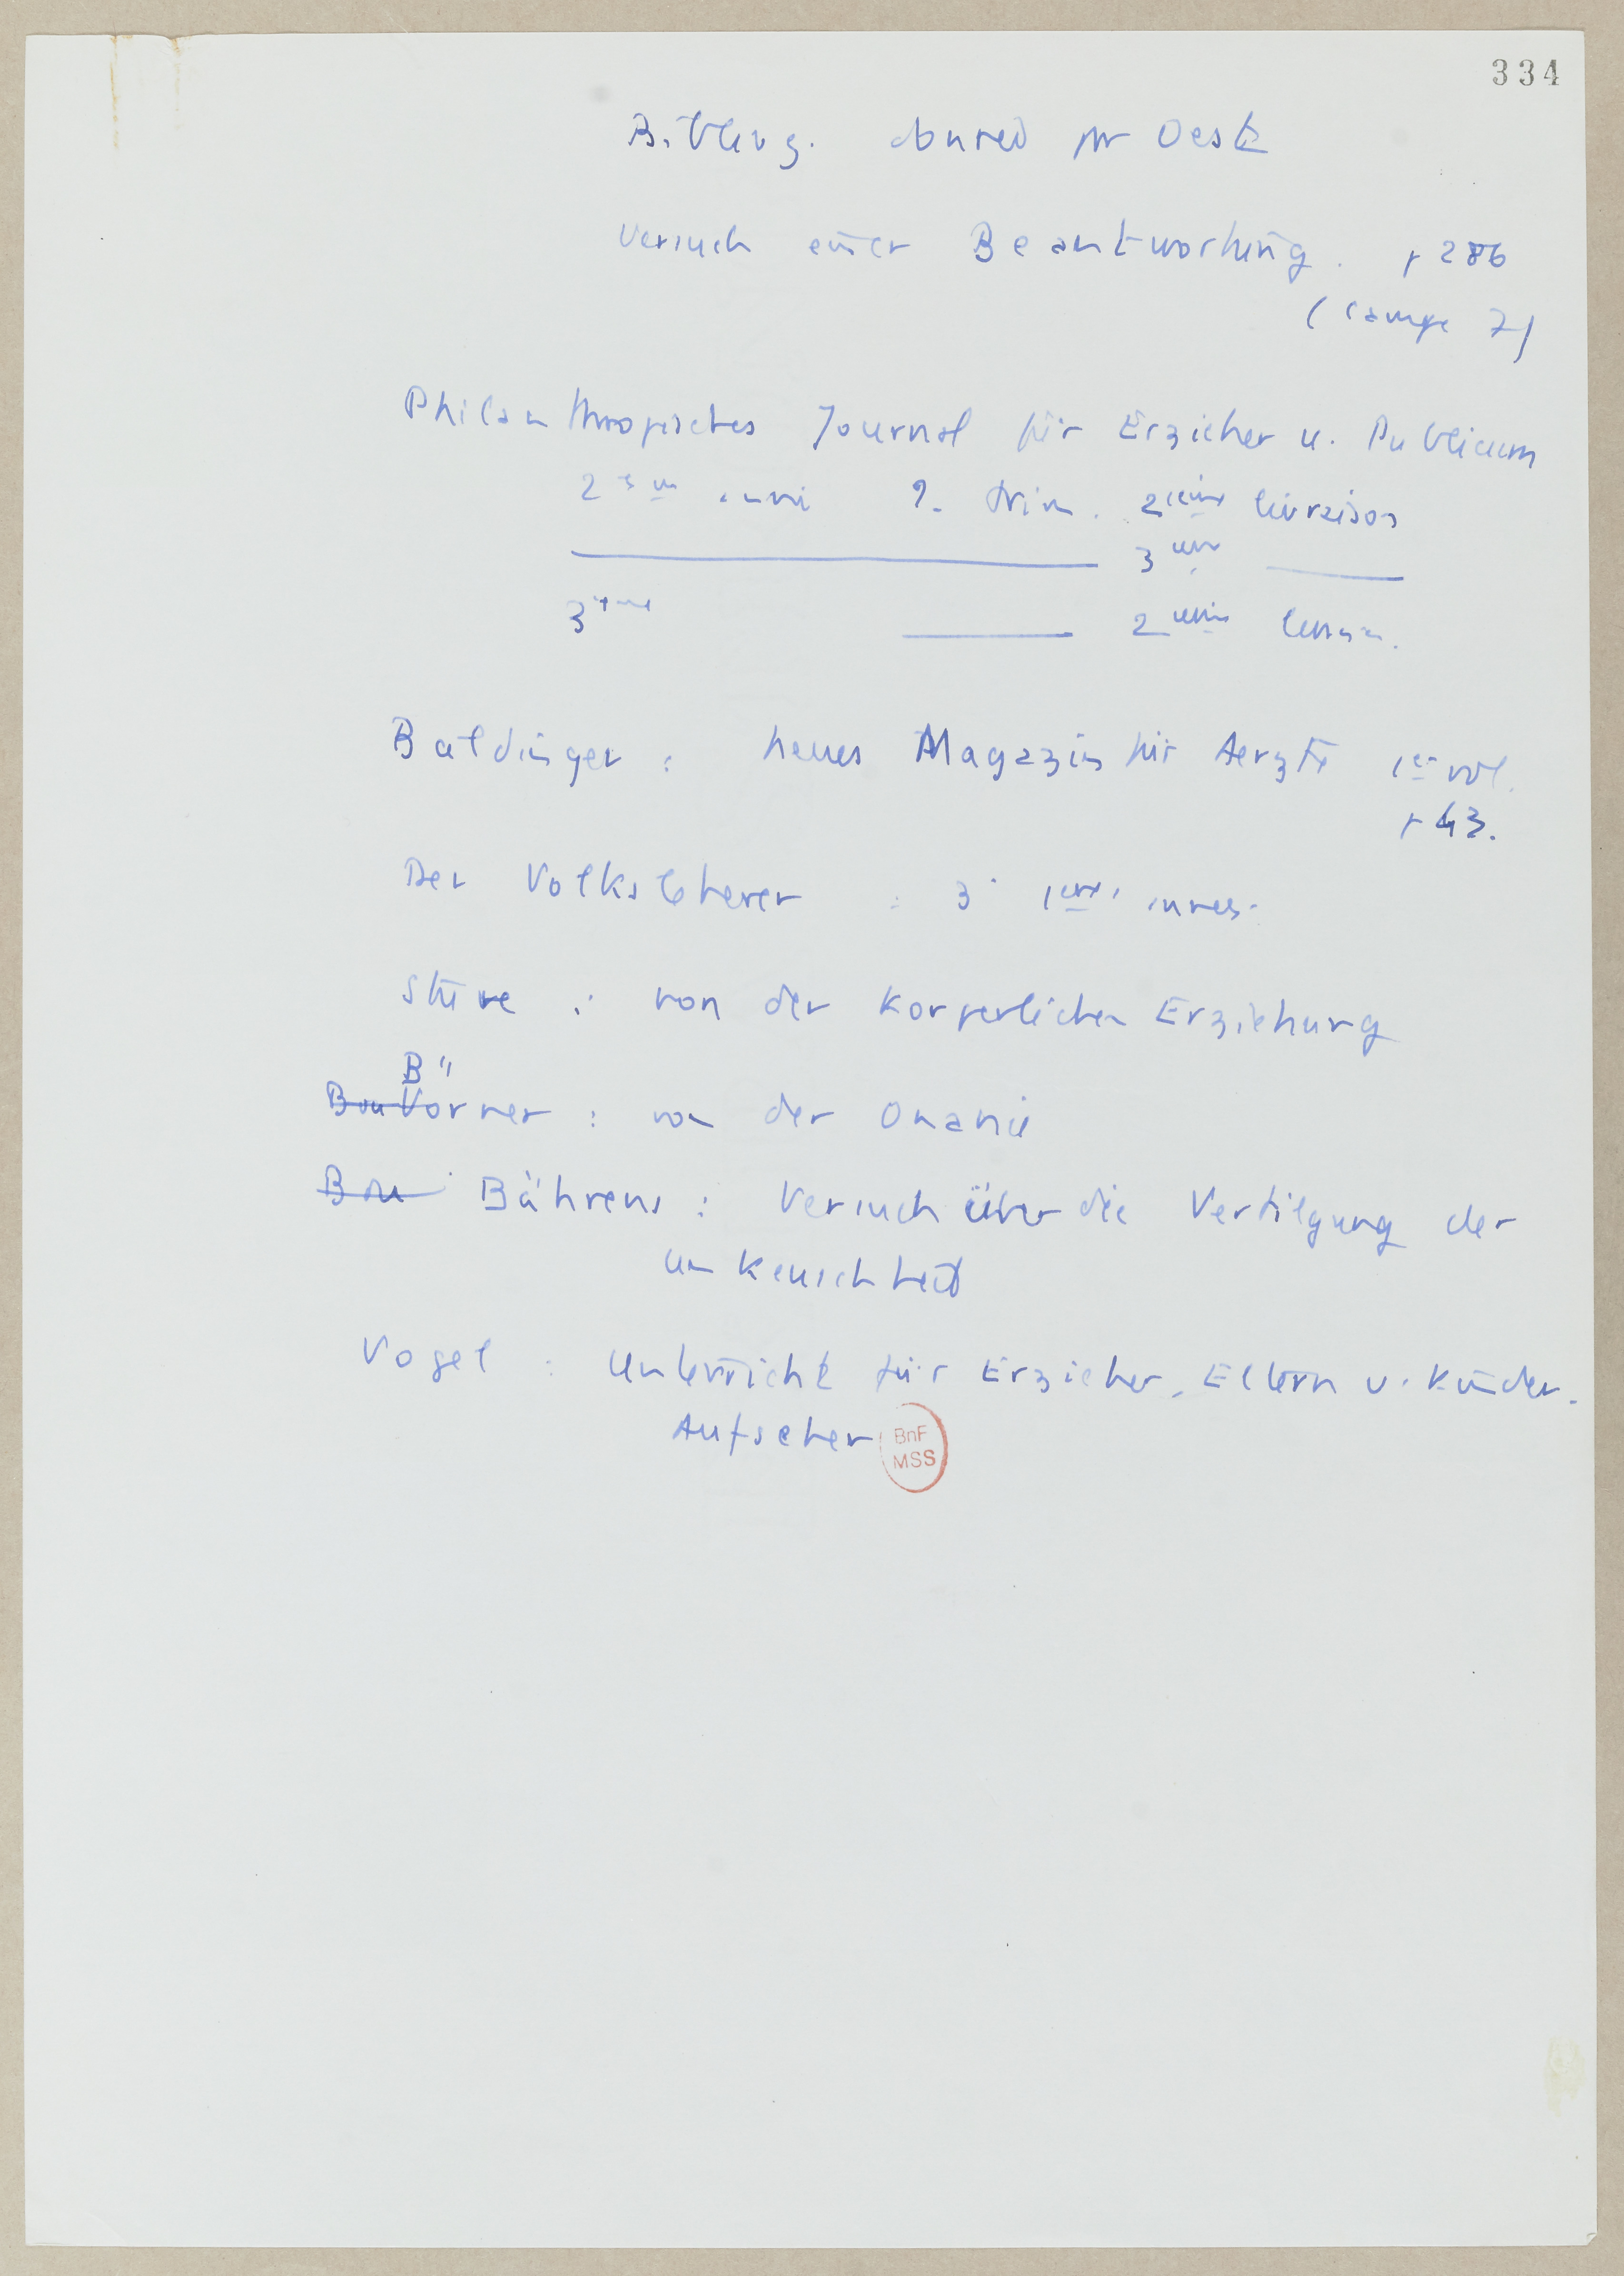 334
Bibliog. donnée par Oest
Versuch einer Beantwortung. p 286
(Campe 7)
Philanthropisches Journal für Erzieher u. Publicum
2ème année 2. trim. 2ième livraison
3ème
3ème 2ième livraison.
Baldinger : neues Magazin für Aerzte 1er vol.
p 43.
Der Volkslehrer : 3 1ères années.
Stuve : von der korperlichen Erziehung
B"
Börner : von der Onanie
Bährens : Versuch über die Vertilgung der
Unkeuschheit
Vogel : Unterricht für Erzieher, Eltern u. Kinder-
Aufseher
BnF
MSS